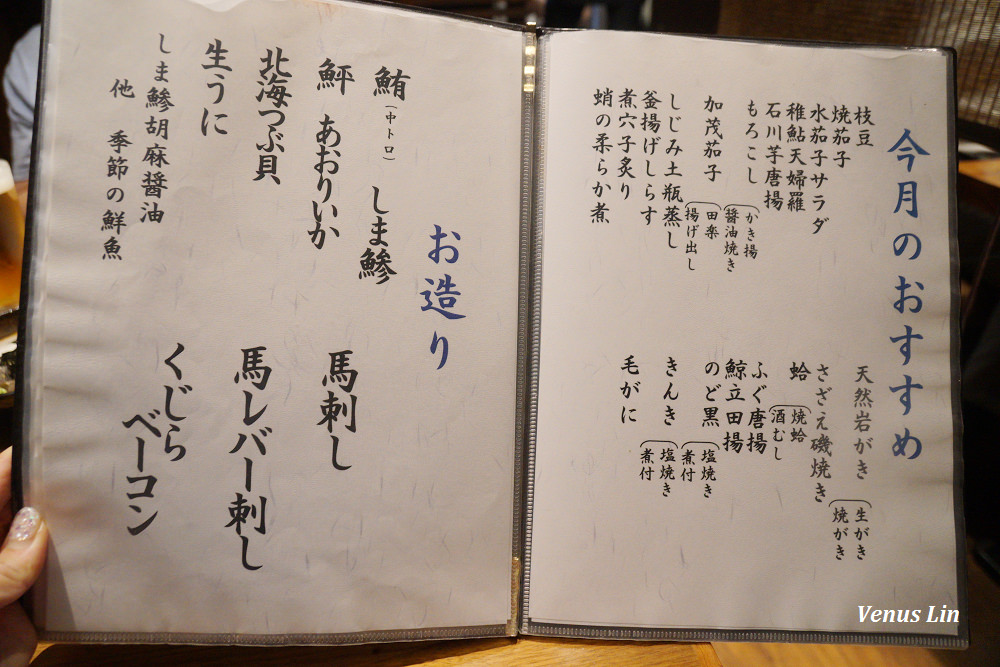 今月のおすすめ
枝豆
焼茄子
水茄子サラダ
稚鮎天婦羅
石川芋唐揚
もろこし
かき揚
醤油焼き
加茂茄子
田楽
揚げ出し
しじみ土瓶蒸し
釜揚げしらす
煮穴子炙り
蛸の柔らか煮
天然岩がき
生がき
焼がき
さざえ磯焼き
蛤
焼蛤
酒むし
ふぐ唐揚
鯨立田揚
のど黒
塩焼き
煮付
きんき
塩焼き
煮付
毛がに
お造り
鮪(中トロ) しま鰺
鮃 あおりいか
北海つぶ貝
生うに
しま鰺胡麻醤油
他 季節の鮮魚
馬刺し
馬レバー刺し
くじら
ベーコン
Venus Lin